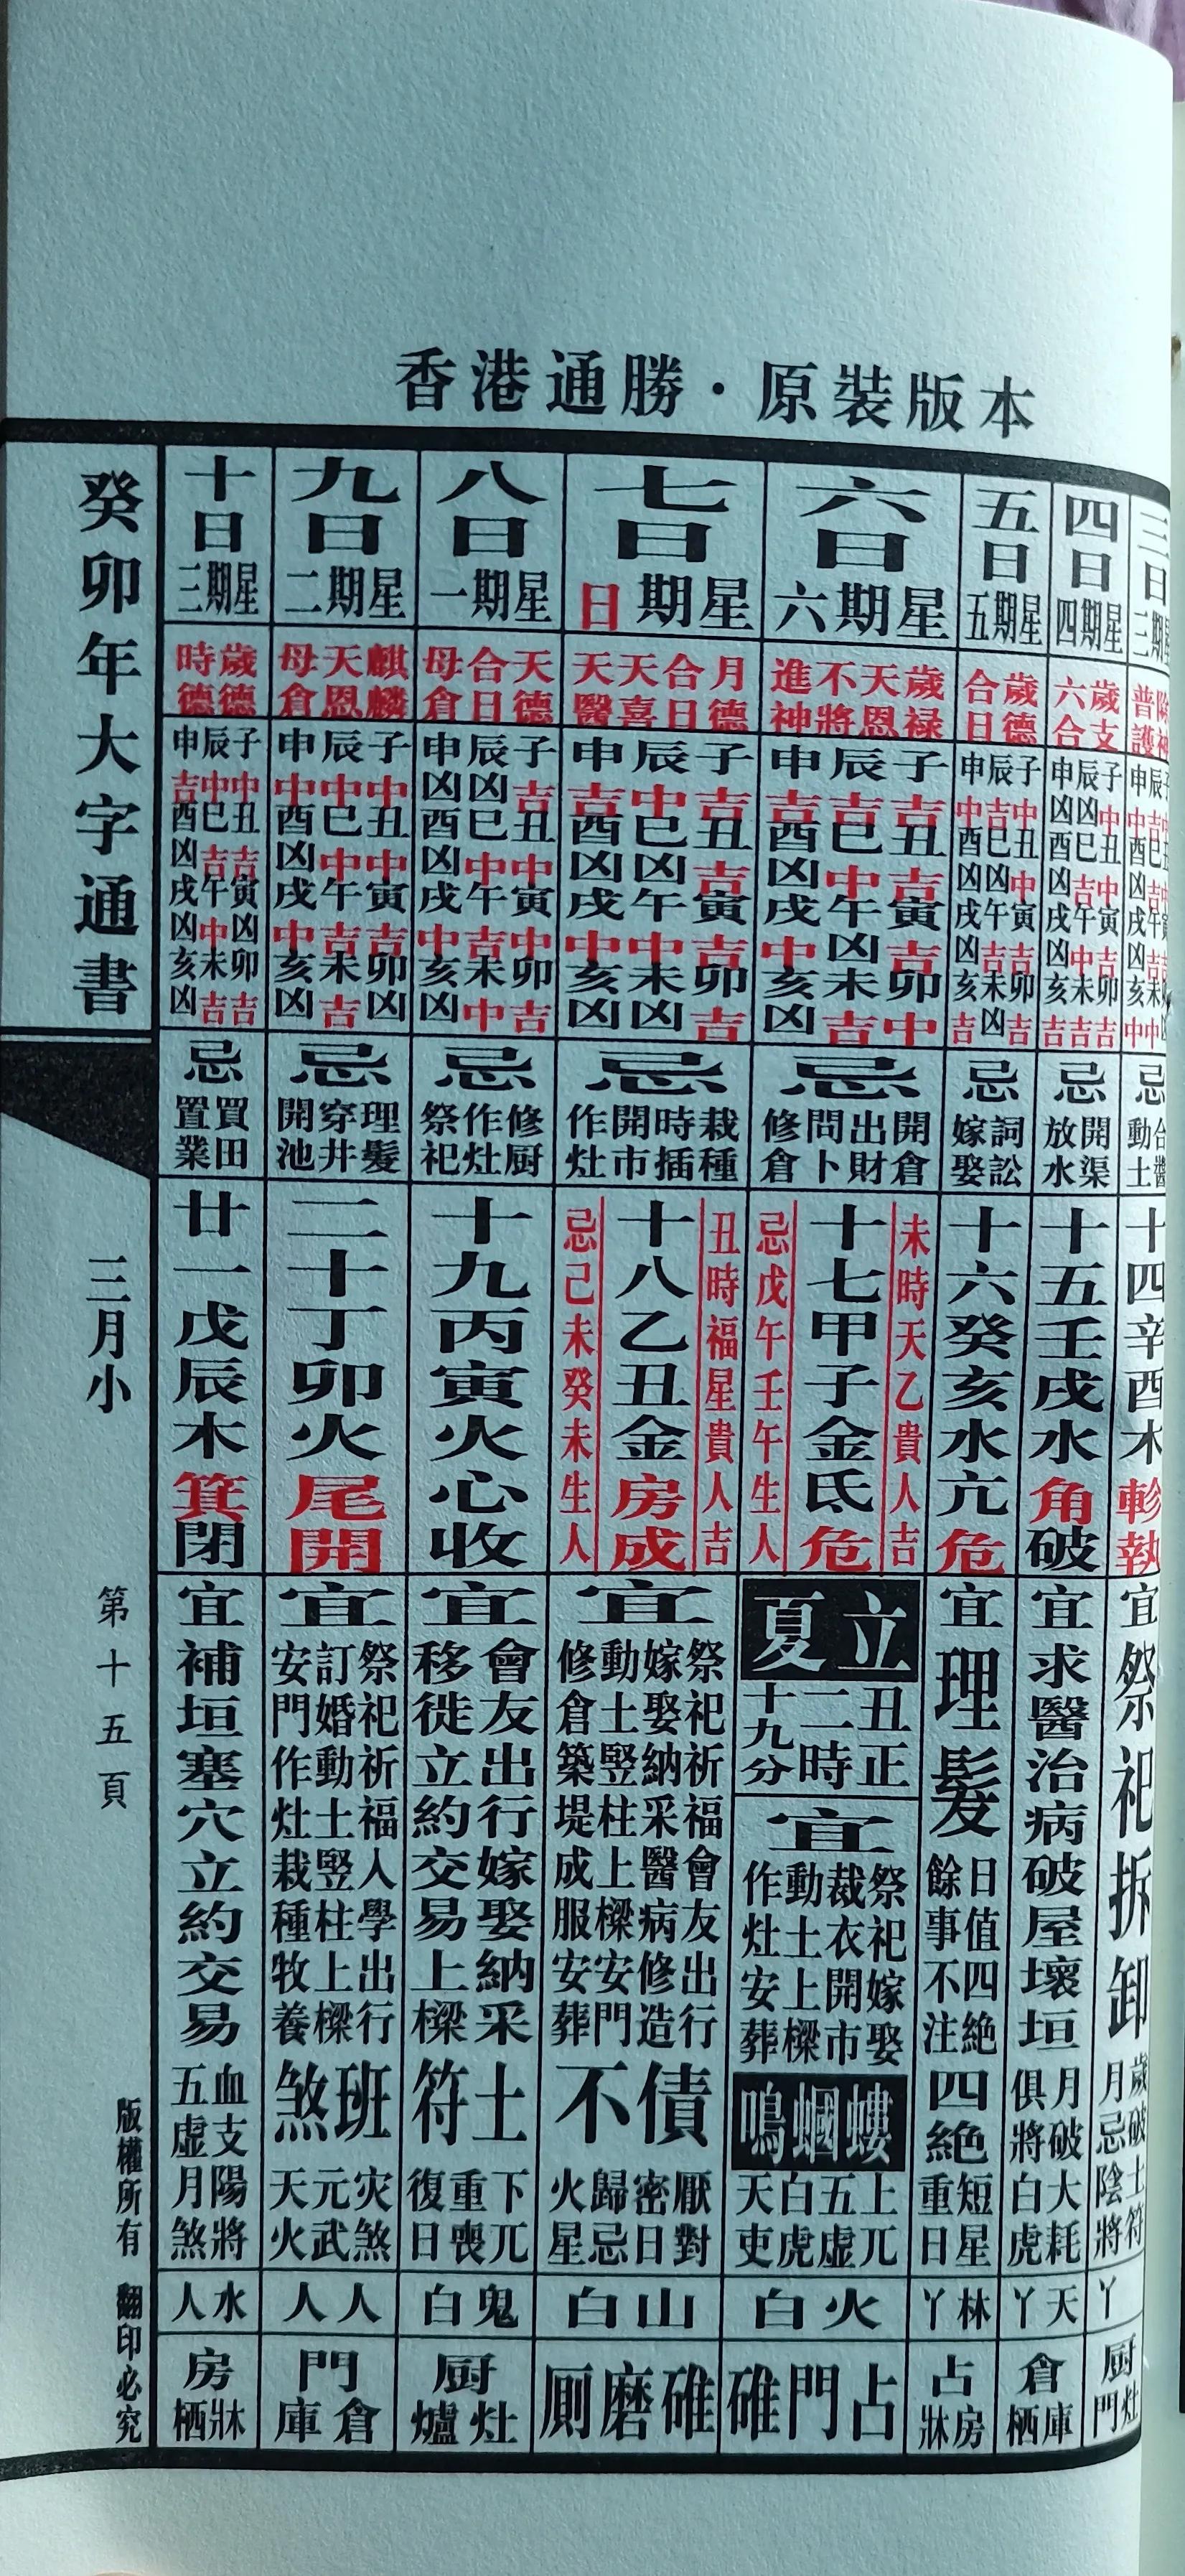 香港通勝·原裝版本
三日
三期
除神
普護
辰吉巳吉午吉未中
申中酉凶戌凶亥中
忌
合醬
動土
十四辛酉木軫執
宜
祭祀拆卸
歲破土符
月忌陰將
丫
厨灶
門
四日
星期四
歲支
六合
子中丑中寅吉卯吉
辰凶巳吉午中未吉
申凶酉凶戌凶亥吉
忌
開渠
放水
十五壬戌水角破
宜
求醫治病破屋壞垣
月破大耗
俱將白虎
天丫
倉庫
栖
五日
星期五
歲德
合日
子中丑中寅吉卯吉
辰吉巳凶午吉未凶
申中酉凶戌凶亥吉
忌
詞訟
嫁娶
十六癸亥水亢危
宜
理髮
日值四絶
餘事不注
四絶
短星
重日
林丫
占
房牀
六日
星期六
歲禄
天恩
不將
進神
子吉丑吉寅吉卯中
辰吉巳中午凶未吉
申吉酉凶戌中亥凶
忌
開倉
出財
問卜
修倉
未時天乙貴人吉
十七甲子金氐危
忌戊午壬午生人
立夏
丑正
二時
十九分
宜
祭祀嫁娶
裁衣開市
動土上樑
作灶安葬
螻蟈鳴
上兀
五虚
白虎
天吏
火白
占門碓
七日
星期日
月德
合日
天喜
天醫
子吉丑吉寅吉卯吉
辰中巳凶午中未凶
申吉酉凶戌中亥凶
忌
栽種
時插
開市
作灶
丑時福星貴人吉
十八乙丑金房成
忌己未癸未生人
宜
祭祀祈福會友出行
嫁娶納采醫病修造
動土竪柱上樑安門
修倉築堤成服安葬
債不
厭對
密日
歸忌
火星
山白
碓磨厠
八日
星期一
天德
合日
母倉
子吉丑中寅中卯吉
辰凶巳中午吉未中
申凶酉凶戌中亥凶
忌
修厨
作灶
祭祀
十九丙寅火心收
宜
會友出行嫁娶納采
移徙立約交易上樑
土符
下兀
重喪
復日
鬼白
厨
灶爐
九日
星期二
麒麟
天恩
母倉
子中丑中寅吉卯凶
辰中巳中午吉未吉
申中酉凶戌中亥凶
忌
理髮
穿井
開池
二十丁卯火尾開
宜
祭祀祈福入學出行
訂婚動土竪柱上樑
安門作灶栽種牧養
班煞
灾煞
元武
天火
人人
門
倉庫
十日
星期三
歲德
時德
子中丑吉寅凶卯吉
辰中巳吉午中未吉
申吉酉凶戌凶亥凶
忌
買田
置業
廿一戊辰木箕閉
宜
補垣塞穴立約交易
血支陽將
五虚月煞
水人
房
牀栖
癸卯年大字通書
三月小
第十五頁
版權所有 翻印必究